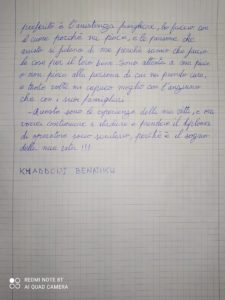 preferito è l'assistenza famigliare, lo faccio con
il cuore perché mi piace, e le persone che
assisto si fidano di me perché sanno che faccio
le cose per il loro bene. Sono attenta a cosa piace
o non piace alla persona di cui mi prendo cura,
e tante volte mi capisco meglio con l'anziano
che con i suoi famigliari.
- Queste sono le esperienze della mia vita, e ora
vorrei continuare a studiare e prendere il diploma
di operatore socio sanitario, perché è il sogno
della mia vita !!!
KHADDOUJ BENNIKU
REDMI NOTE 8T
AI QUAD CAMERA